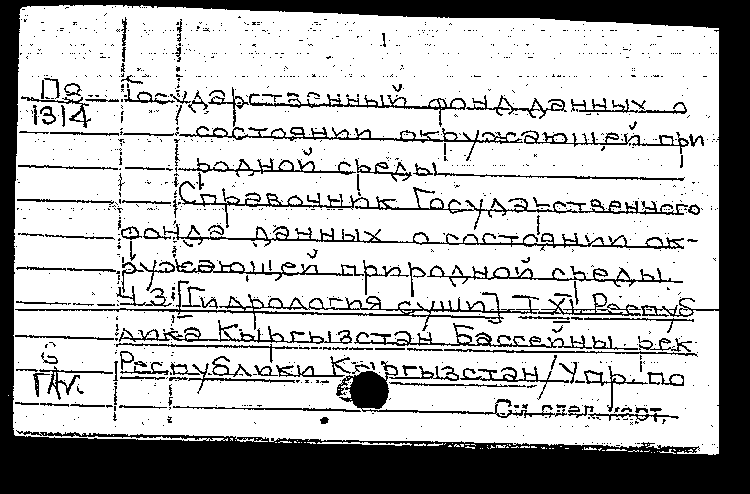 1
П8
1314
Государственный фонд данных о
состоянии окружающей при
родной среды
Справочник Государственного
фонда данных о состоянии ок-
ружающей природной среды.
Ч.3 [Гидрология суши] Т.XI. Респуб
лика Кыргызстан Бассейны рек
Республики Кыргызстан/Упр. по
См. след. карт.